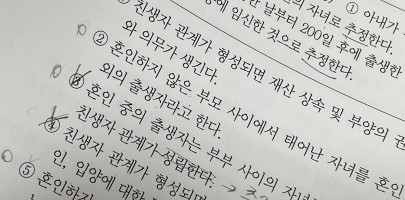 ① 아내가
날부터 200일 후에 출생한
에 임신한 것으로 추정한다.
의 자녀로 추정한다.
친생자 관계가 형성되면 재산 상속 및 부양의 권
와 의무가 생긴다.
② 혼인하지 않은 부모 사이에서 태어난 자녀를 혼인
외의 출생자라고 한다.
③ 혼인 중의 출생자는 부부 사이의 자녀
친생자 관계가 성립한다.
④ 친생자 관계가 형성되면
인, 입양에 대한
⑤ 혼인하지